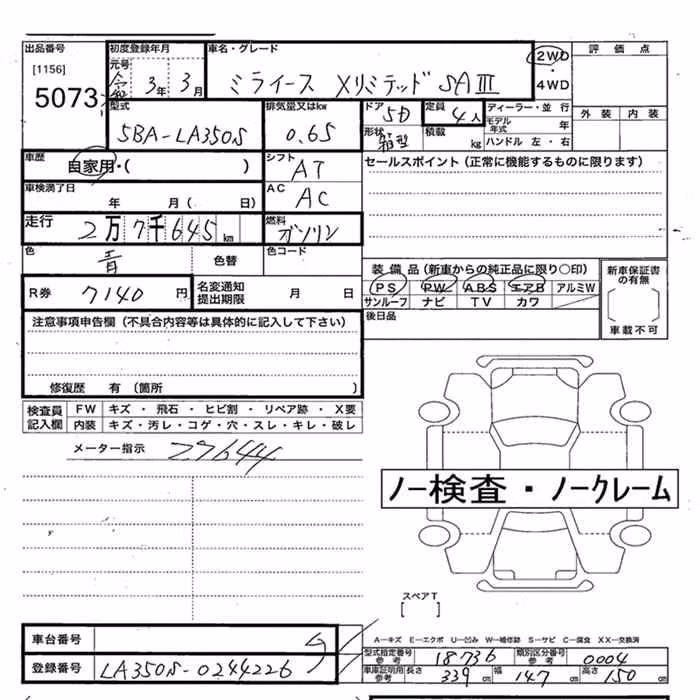 出品番号 初度登録年月 車名・グレード 2WD・4WD 評価点
[1156] 元号 令和 3年 3月 ミライース Xリミテッド SAⅢ
5073
型式 排気量又はkw ドア 5D 定員 4人 ディーラー・並行 外装 内装
5BA-LA350S 0.65 形状 箱型 積載 kg モデル年式 年
ハンドル 左・右
車歴 自家用・( ) シフト AT セールスポイント(正常に機能するものに限ります)
車検満了日 年 月( 日) AC AC
走行 2万7千645km 燃料 ガソリン
色 青 色替 色コード
装備品(新車からの純正品に限り〇印) 新車保証書の有無
R券 7140円 名変通知提出期限 月 日 PS PW ABS エアB アルミW
サンルーフ ナビ TV カワ
車載不可
注意事項申告欄(不具合内容等は具体的に記入して下さい) 後日品
修復歴 有(箇所 )
検査員記入欄 FW キズ・飛石・ヒビ割・リペア跡・X要
内装 キズ・汚レ・コゲ・穴・スレ・キレ・破レ
メーター指示 27644
ノー検査・ノークレーム
スペアT
[ ]
車台番号 A―キズ E―エクボ U―凹み W―補修跡 S―サビ C―腐食 XX―交換済
型式指定番号 参考 18736 類別区分番号 参考 0004
登録番号 LA350S-0244226 車庫証明用 参考 長さ 339cm 幅 147cm 高さ 150cm